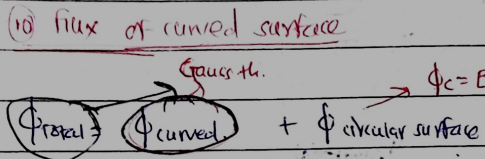 (10) flux of curved surface
Gauss th.
ϕc = E
ϕtotal = ϕcurved + ϕ circular surface